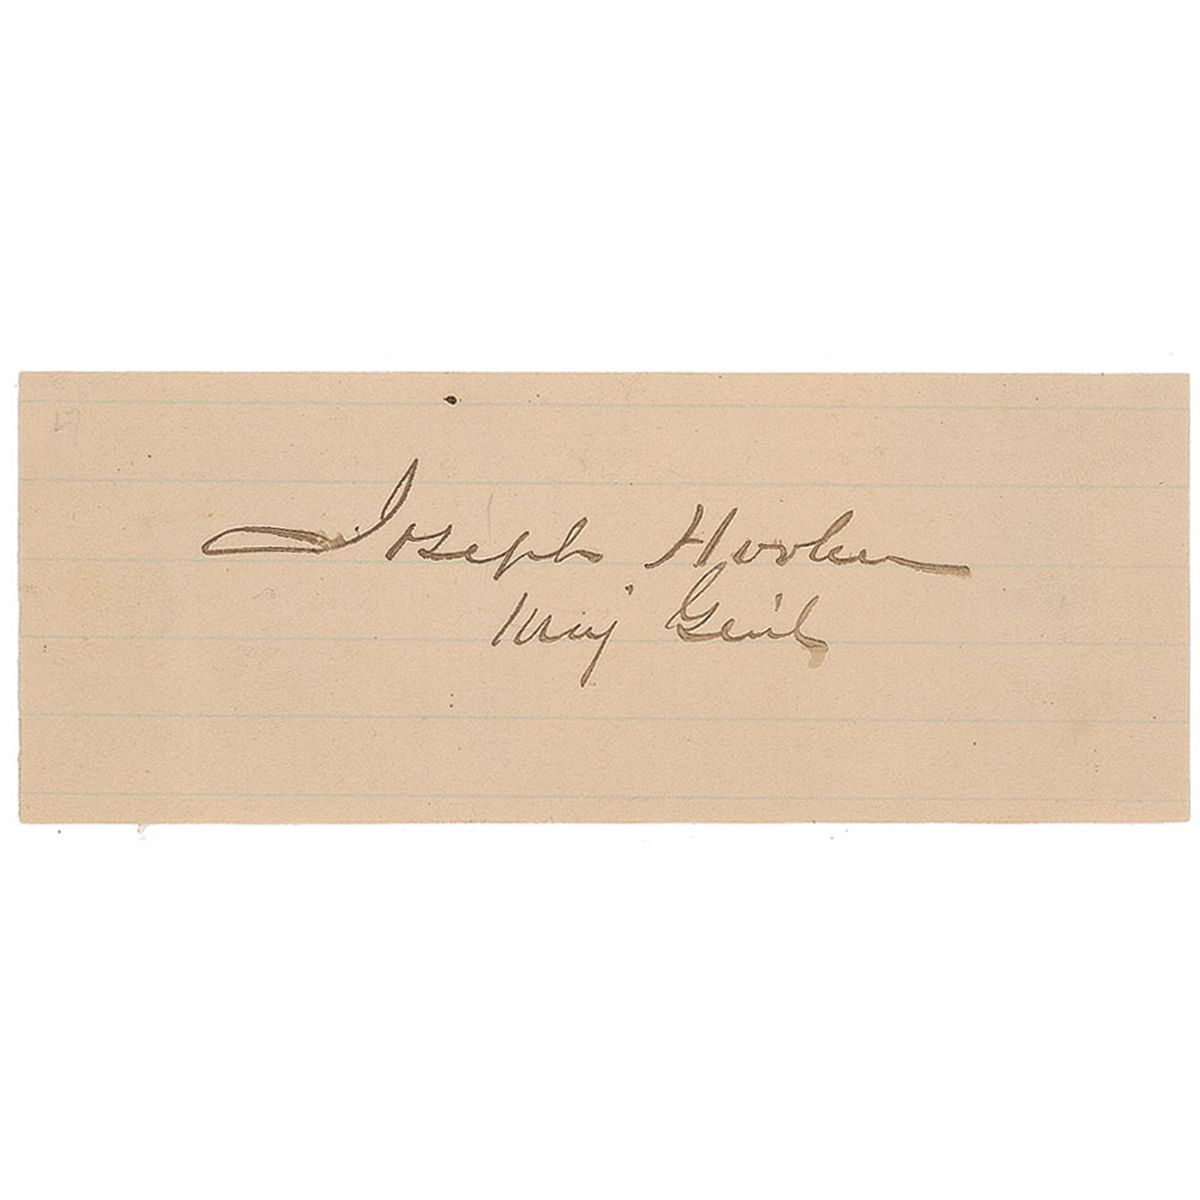 Joseph Hooker
Maj Gen'l